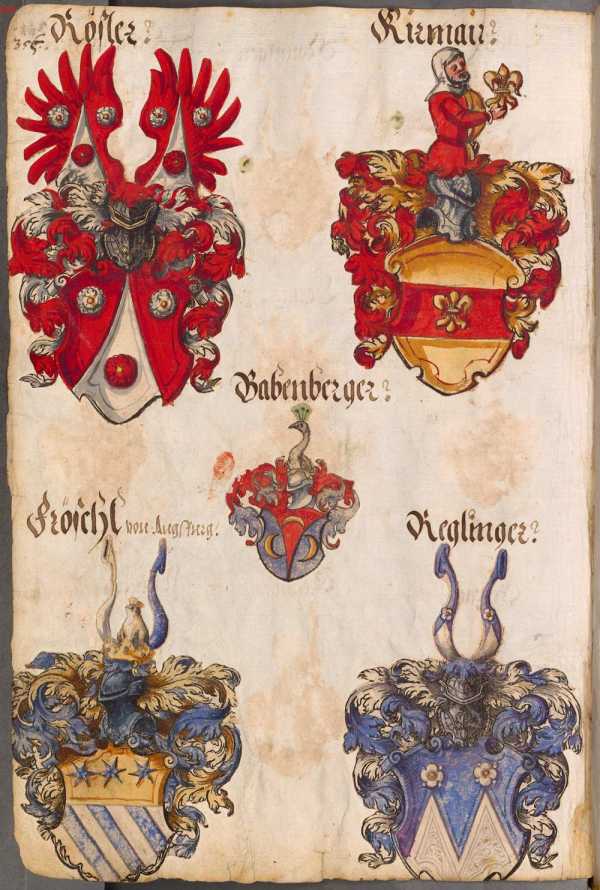 Rösler:
355.
Kirmair:
Babenberger:
Fröschl von Augspurg.
Reglinger: